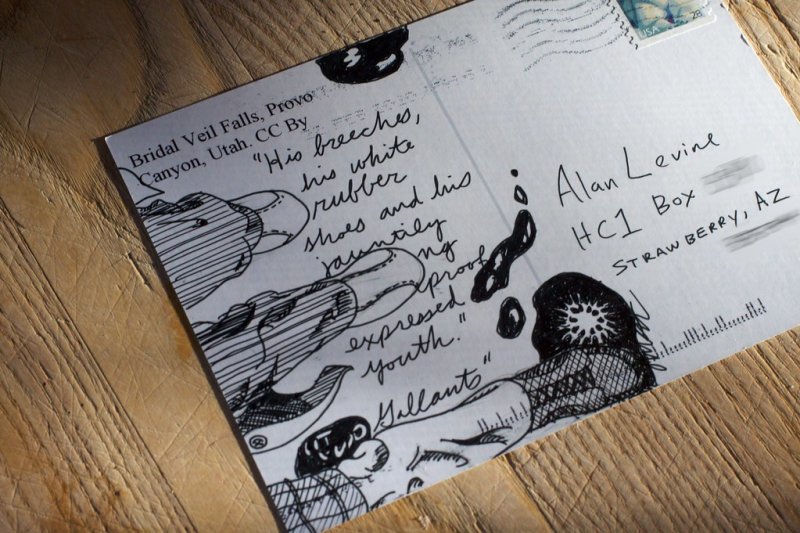 USA 28
Bridal Veil Falls, Provo
Canyon, Utah. CC By
"His breeches,
his white
rubber
shoes and his
jauntily
ng
proof
expressed
youth."
Gallants"
Alan Levine
HC1 Box
STRAWBERRY, AZ